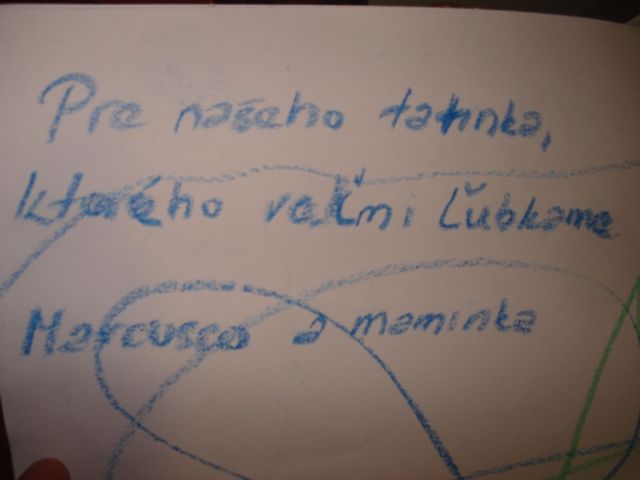 Pre našeho tatinka,
ktorého veľmi Ľubkame
Marcusco a maminka